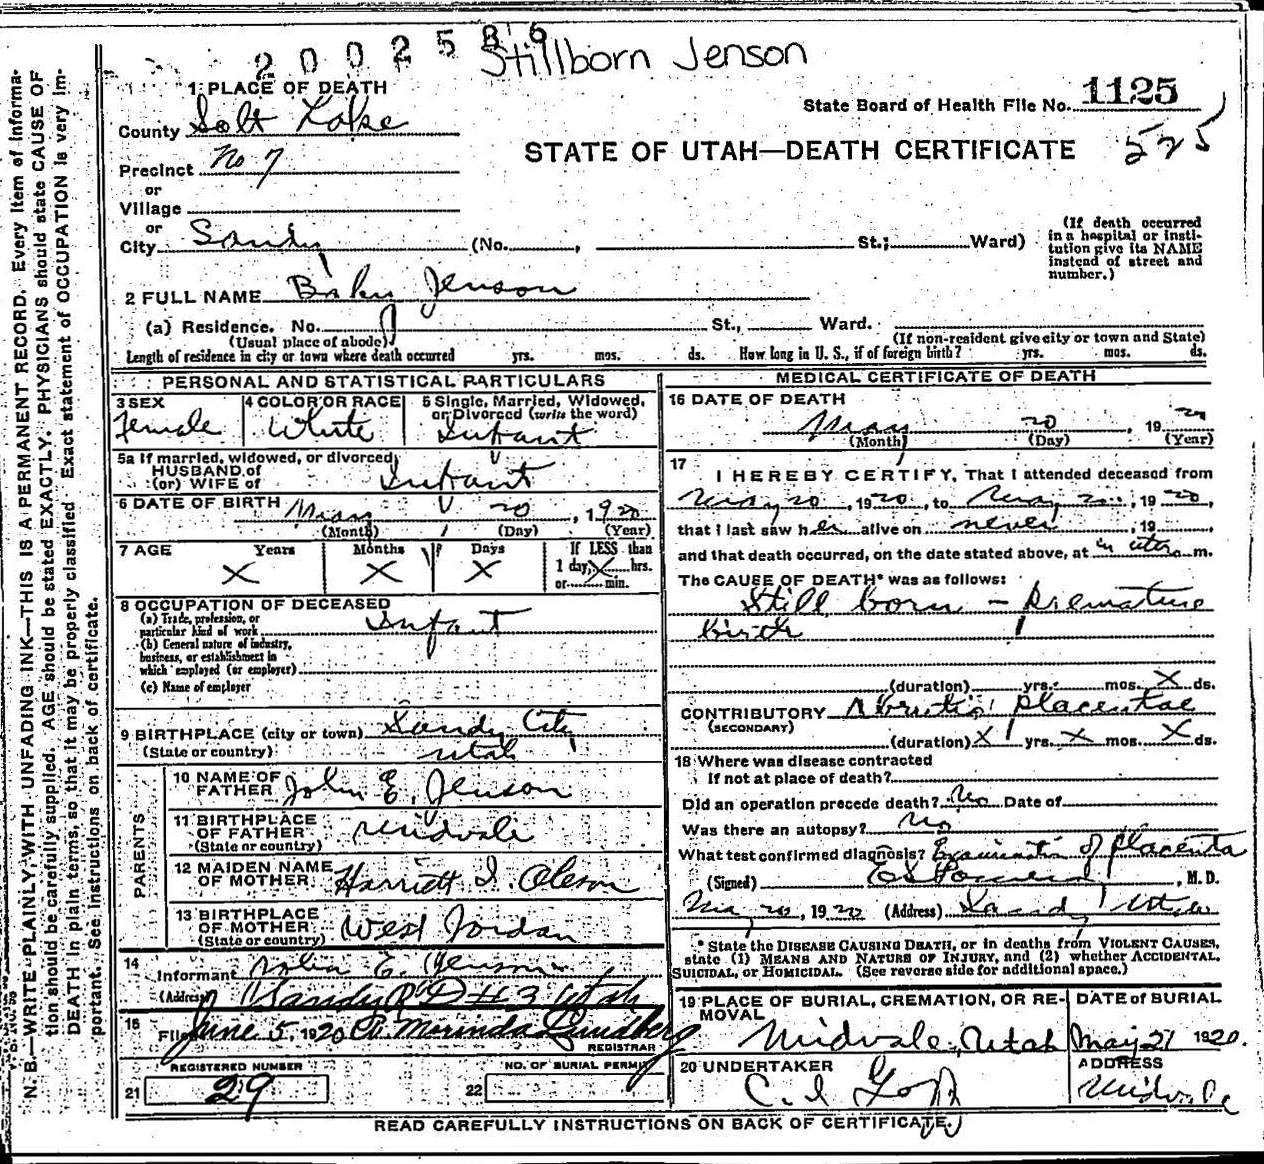 2 0 0 2 5 8 6
Stillborn Jenson
1 PLACE OF DEATH
State Board of Health File No. 1125
County Salt Lake
STATE OF UTAH—DEATH CERTIFICATE 525
Precinct No 7
or
Village
or
City Sandy (No. , St.; Ward)
(If death occurred in a hospital or institution give its NAME instead of street and number.)
2 FULL NAME Baby Jenson
(a) Residence. No. St., Ward.
(Usual place of abode) (If non-resident give city or town and State)
Length of residence in city or town where death occurred yrs. mos. ds. How long in U. S., if of foreign birth? yrs. mos. ds.
PERSONAL AND STATISTICAL PARTICULARS
3 SEX Female
4 COLOR OR RACE White
5 Single, Married, Widowed, or Divorced (write the word) Infant
5a If married, widowed, or divorced
HUSBAND of
(or) WIFE of Infant
6 DATE OF BIRTH May 20, 1920
(Month) (Day) (Year)
7 AGE Years Months Days If LESS than
X X X 1 day, X hrs.
or min.
8 OCCUPATION OF DECEASED
(a) Trade, profession, or
particular kind of work Infant
(b) General nature of industry,
business, or establishment in
which employed (or employer)
(c) Name of employer
9 BIRTHPLACE (city or town) Sandy City
(State or country) Utah
PARENTS
10 NAME OF FATHER John E. Jenson
11 BIRTHPLACE OF FATHER Midvale
(State or country)
12 MAIDEN NAME OF MOTHER Harriett I. Oleson
13 BIRTHPLACE OF MOTHER West Jordan
(State or country)
14
Informant John E. Jenson
(Address) Sandy R D # 3 Utah
15
Filed June 5, 1920 Morinda Lundberg
REGISTRAR
REGISTERED NUMBER NO. OF BURIAL PERMIT
21 29 22
MEDICAL CERTIFICATE OF DEATH
16 DATE OF DEATH
May 20, 1920
(Month) (Day) (Year)
17
I HEREBY CERTIFY, That I attended deceased from
May 20, 1920, to May 20, 1920,
that I last saw her alive on never, 19
and that death occurred, on the date stated above, at in utero m.
The CAUSE OF DEATH* was as follows:
Still born - premature
birth
(duration) yrs. mos. X ds.
CONTRIBUTORY placentae
(SECONDARY)
(duration) X yrs. X mos. X ds.
18 Where was disease contracted
if not at place of death?
Did an operation precede death? No Date of
Was there an autopsy? No
What test confirmed diagnosis? Examination of placenta
(Signed) , M. D.
May 20, 1920 (Address) Sandy Utah
* State the DISEASE CAUSING DEATH, or in deaths from VIOLENT CAUSES,
state (1) MEANS AND NATURE OF INJURY, and (2) whether ACCIDENTAL,
SUICIDAL, or HOMICIDAL. (See reverse side for additional space.)
19 PLACE OF BURIAL, CREMATION, OR REMOVAL
Midvale, Utah
DATE of BURIAL
May 21 1920.
20 UNDERTAKER
C. I. Goff
ADDRESS
Midvale
READ CAREFULLY INSTRUCTIONS ON BACK OF CERTIFICATE.
N. B.—WRITE PLAINLY, WITH UNFADING INK—THIS IS A PERMANENT RECORD. Every item of informa-
tion should be carefully supplied. AGE should be stated EXACTLY. PHYSICIANS should state CAUSE OF
DEATH in plain terms, so that it may be properly classified. Exact statement of OCCUPATION is very im-
portant. See instructions on back of certificate.